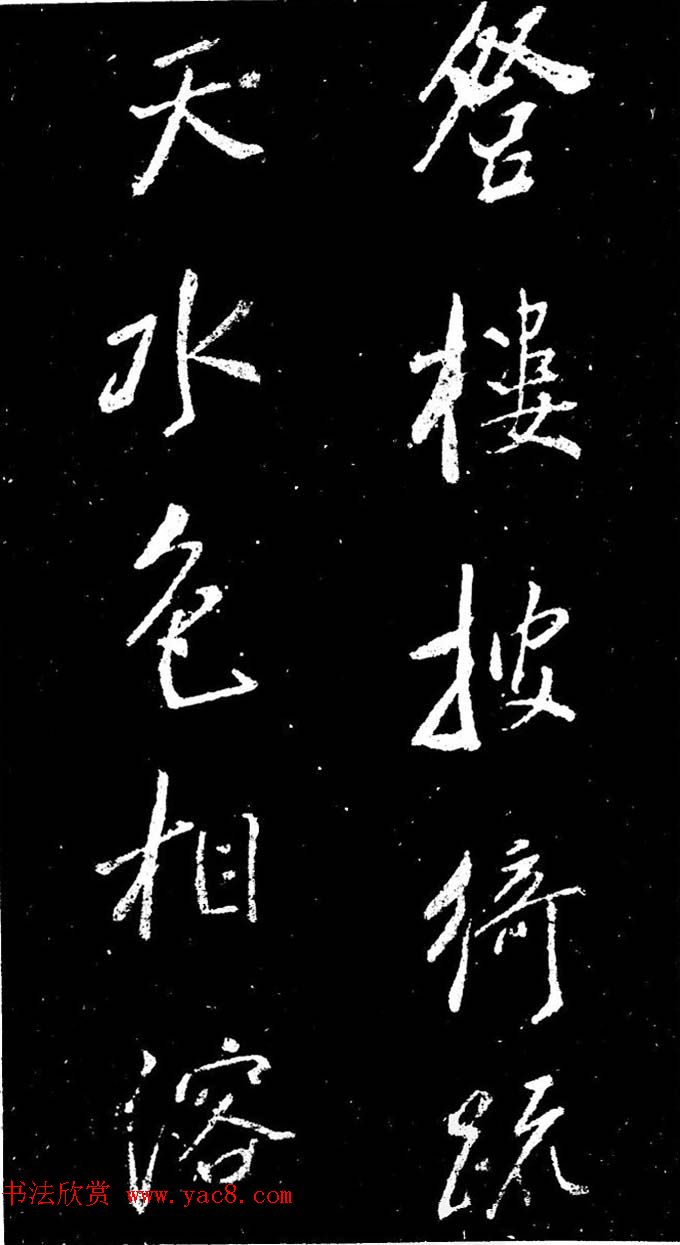 登樓披綺疏
天水色相溶
书法欣赏 www.yac8.com